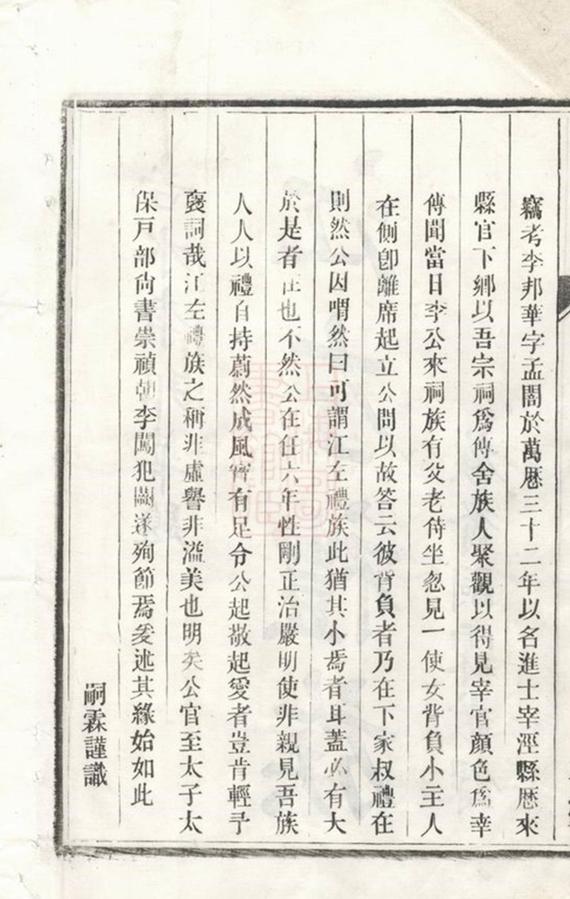 竊考李邦華字孟闇於萬厯三十二年以名進士宰涇縣厯來
縣官下鄉以吾宗祠爲傳舍族人聚觀以得見宰官顏色爲幸
傳聞當日李公來祠族有父老侍坐忽見一使女背負小主人
在側卽離席起立公問以故答云彼背負者乃在下家叔禮在
則然公因喟然曰可謂江左禮族此猶其小焉者耳蓋必有大
於是者在也不然公在任六年性剛正治嚴明使非親見吾族
人人以禮自持蔚然成風實有足令公起敬起愛者豈肯輕予
褒詞哉江左禮族之稱非虛譽非溢美也明矣公官至太子太
保戸部尙書崇禎朝李闖犯闕遂殉節焉爰述其緣始如此
嗣霖謹識